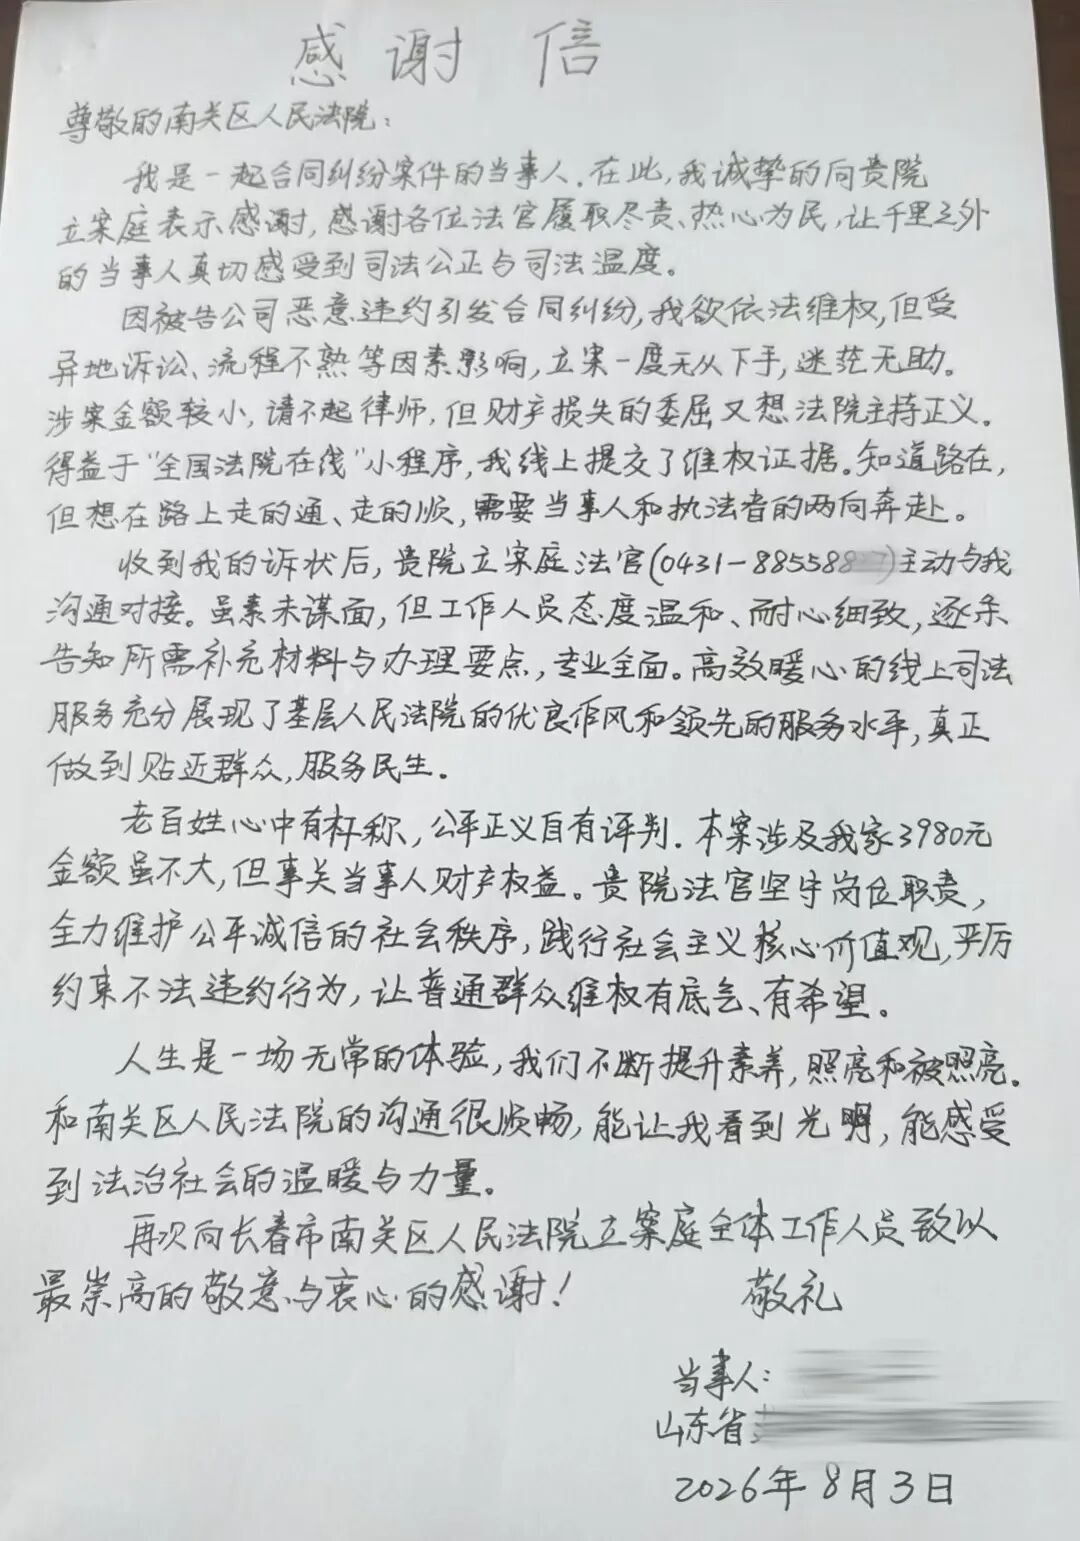 感谢信
尊敬的南关区人民法院：
我是一起合同纠纷案件的当事人.在此,我诚挚的向贵院
立案庭表示感谢,感谢各位法官履职尽责、热心为民,让千里之外
的当事人真切感受到司法公正与司法温度。
因被告公司恶意违约引发合同纠纷,我欲依法维权,但受
异地诉讼、流程不熟等因素影响,立案一度无从下手,迷茫无助。
涉案金额较小,请不起律师,但财产损失的委屈又想法院主持正义。
得益于“全国法院在线”小程序,我线上提交了维权证据。知道路在,
但想在路上走的通、走的顺,需要当事人和执法者的两向奔赴。
收到我的诉状后,贵院立案庭法官(0431-885588)主动与我
沟通对接。虽素未谋面,但工作人员态度温和、耐心细致,逐条
告知所需补充材料与办理要点,专业全面。高效暖心的线上司法
服务充分展现了基层人民法院的优良作风和领先的服务水平,真正
做到贴近群众,服务民生.
老百姓心中有杆称,公平正义自有评判.本案涉及我家3980元
金额虽不大,但事关当事人财产权益。贵院法官坚守岗位职责,
全力维护公平诚信的社会秩序,践行社会主义核心价值观,严厉
约束不法违约行为,让普通群众维权有底气、有希望。
人生是一场无常的体验,我们不断提升素养,照亮和被照亮.
和南关区人民法院的沟通很顺畅,能让我看到光明,能感受
到法治社会的温暖与力量。
再次向长春市南关区人民法院立案庭全体工作人员致以
最崇高的敬意与衷心的感谢!
敬礼
当事人:
山东省
2026年8月3日